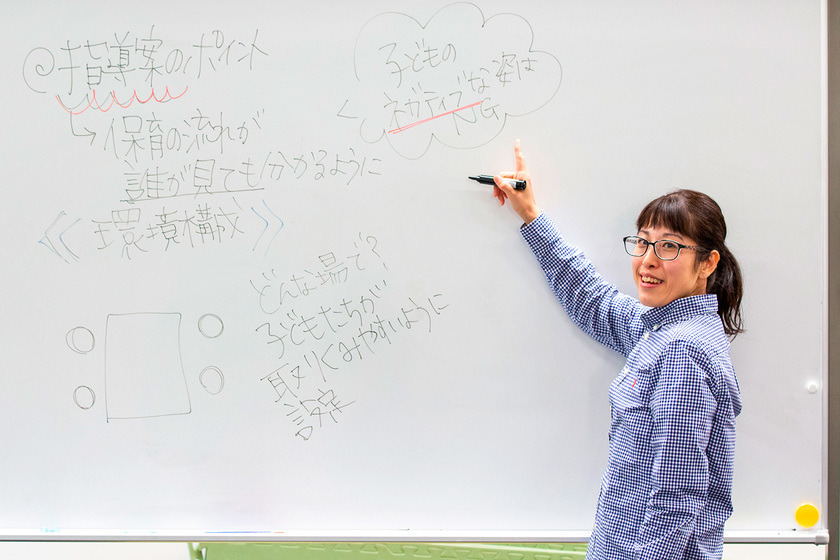 @指導案のポイント
↳保育の流れが
誰が見ても分かるように
《環境構成》
子どもの
ネガティブな姿は
NG
どんな場で?
子どもたちが
取りくみやすいように
設定